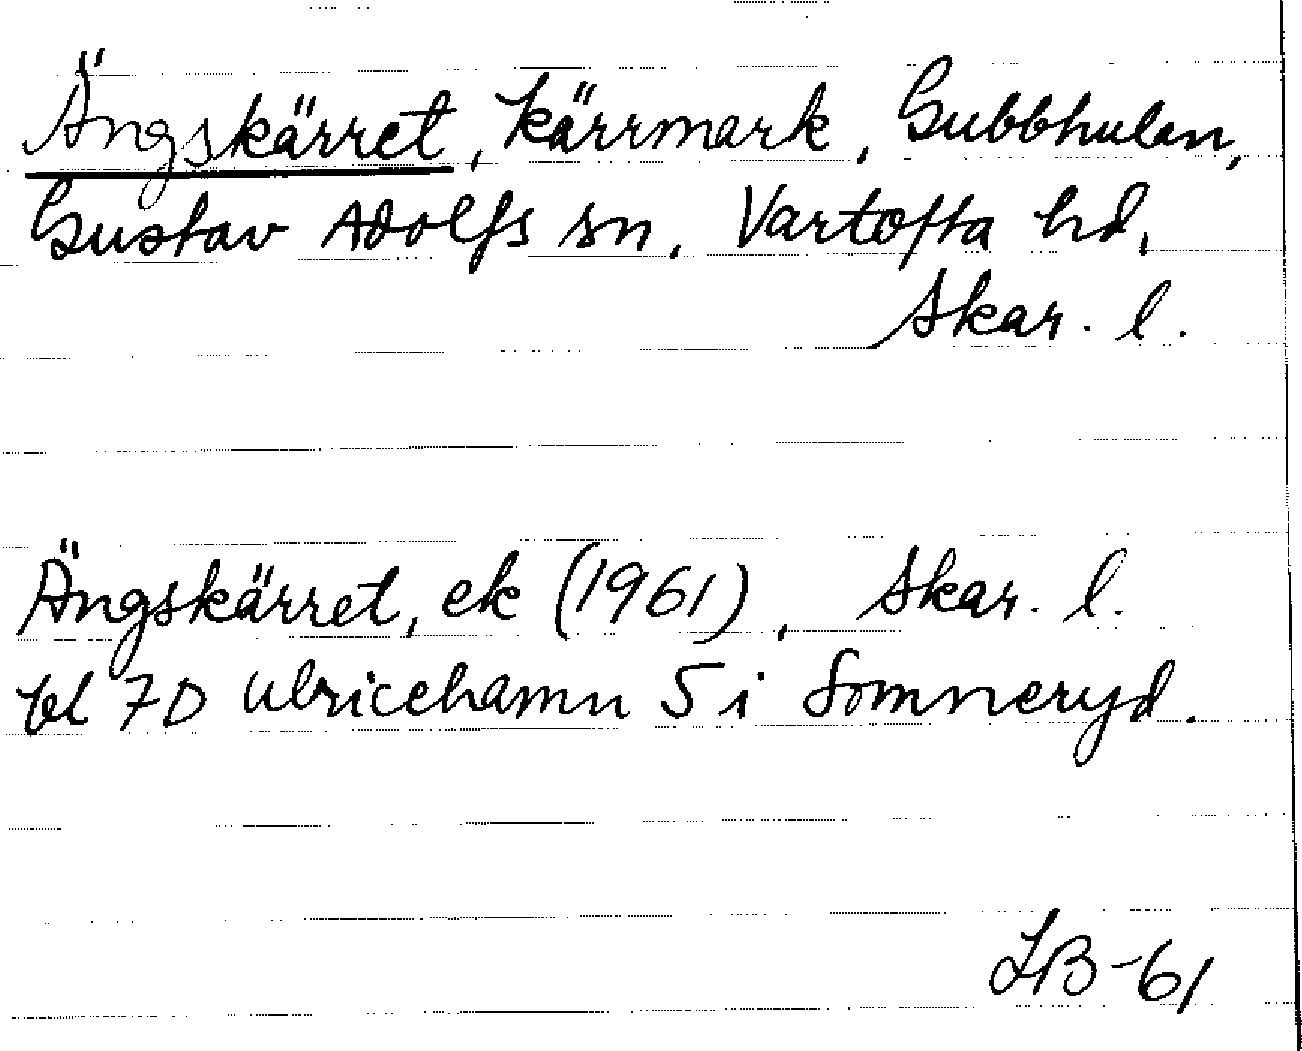 Ängskärret, kärrmark, Gubbhulan,
Gustav Adolfs sn, Vartofta hd,
Skar. l.
Ängskärret, ek (1961), Skar. l.
bl 7D Ulricehamn S i Somneryd.
LB-61